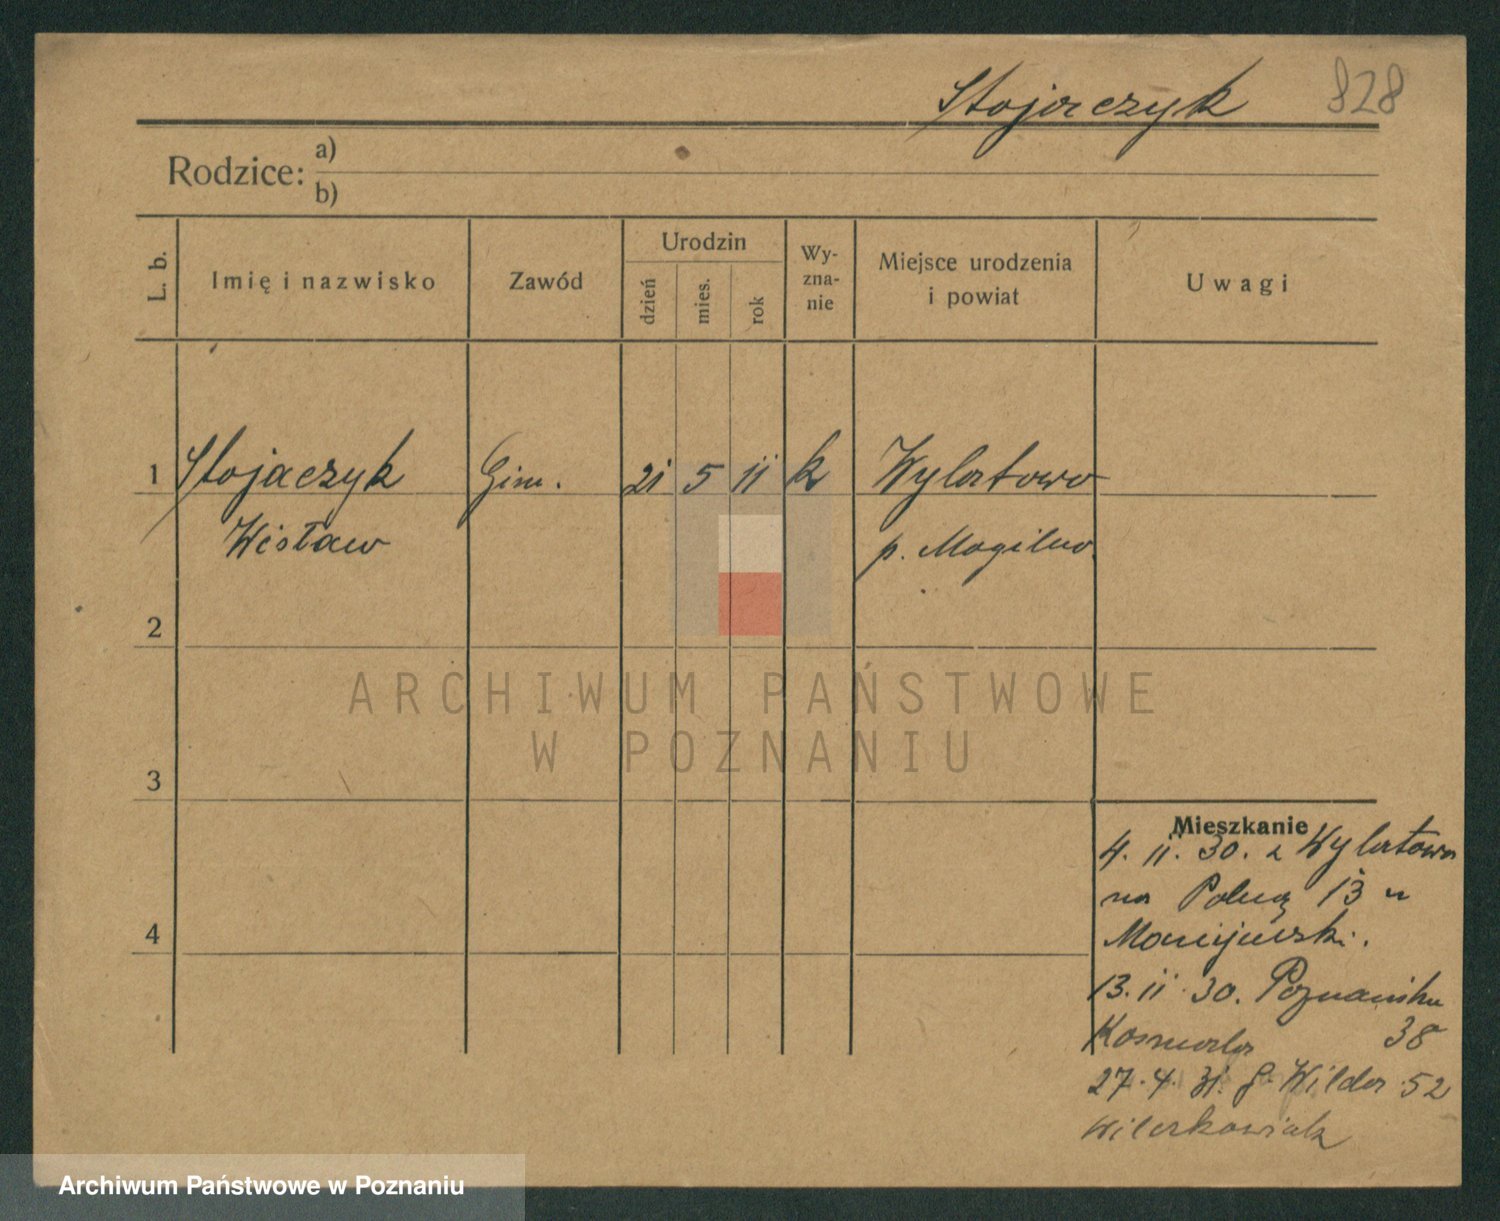 Stojaczyk 828
Rodzice: a)
b)
L. b.
Imię i nazwisko
Zawód
Urodzin
dzień
mies.
rok
Wy-
zna-
nie
Miejsce urodzenia
i powiat
Uwagi
1 Stojaczyk Gim. 21 5 11 k Wylatowo
Wisław p. Mogilno.
2
ARCHIWUM PAŃSTWOWE
W POZNANIU
3
Mieszkanie
4. 11. 30. z Wylatowa
na Polną 13 u
Maciejewski.
4
13. 11. 30. Poznańska
Kosmala 38
27. 4. 31. g. Wilda 52
Archiwum Państwowe w Poznaniu